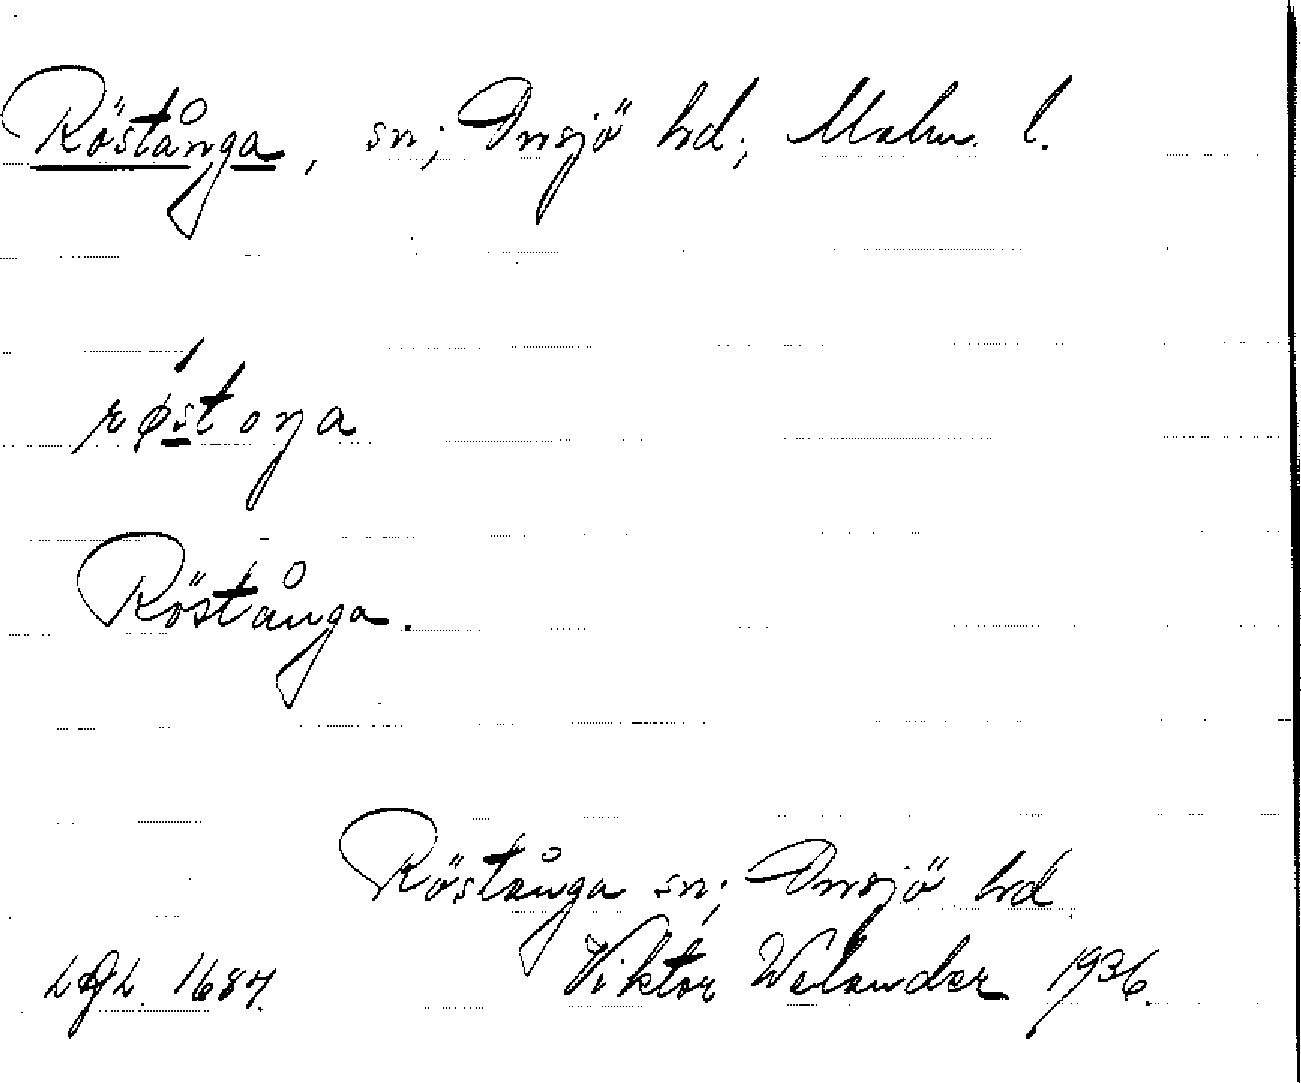 Röstånga, sn; Onsjö hd; Malm. l.
røstoŋa
Röstånga.
Röstånga sn; Onsjö hd
Viktor Welander 1936.
1687.